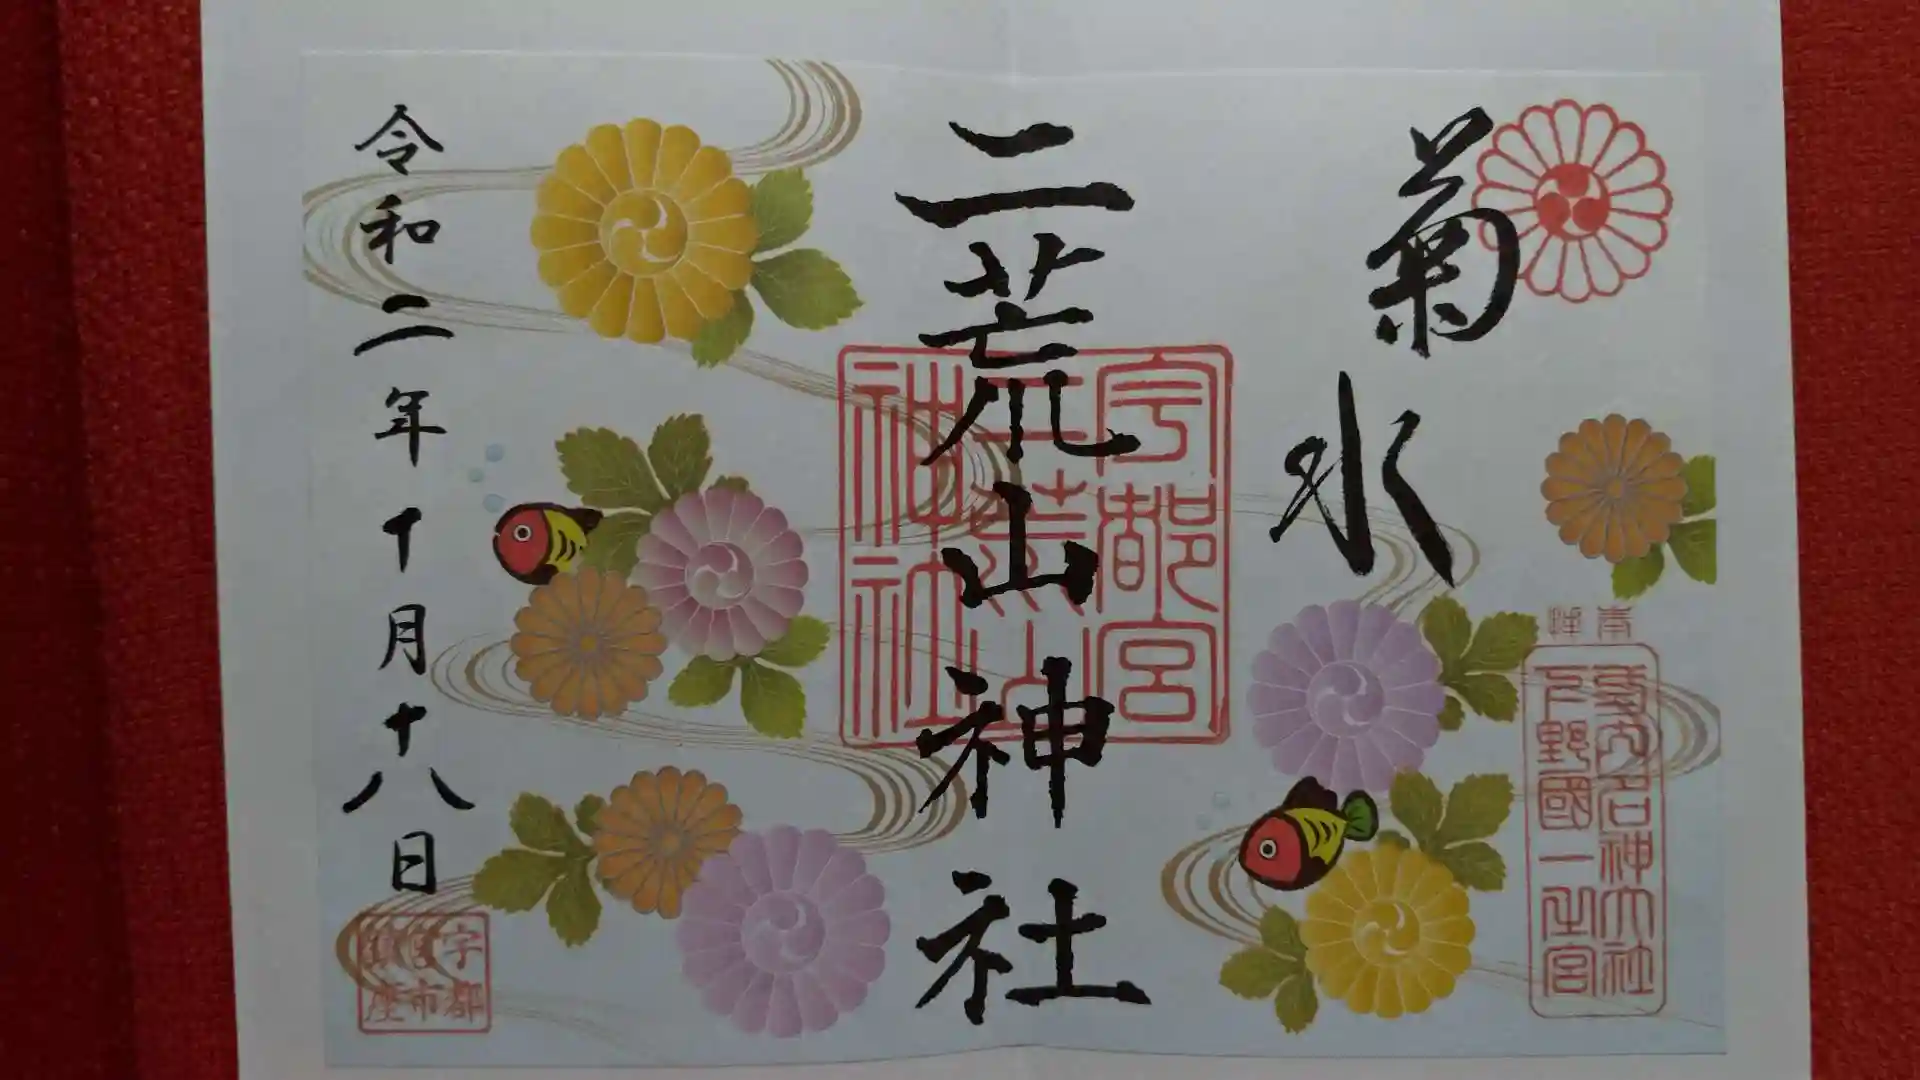 菊水
二荒山神社
令和二年十月十八日
宇都宮
二荒山
神社
奉拝
延喜式内名神大社
下野國一之宮
宇都
宮市
鎮座